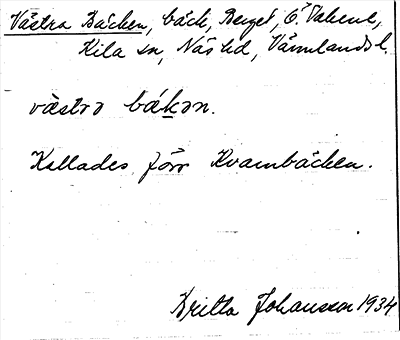 Västra Bäcken, bäck, Berget, Ö. Takene,
Kila sn, Näs hd, Värmlands l.
västrə bäkən.
Kallades förr Kvarnbäcken.
Britta Johansson 1934